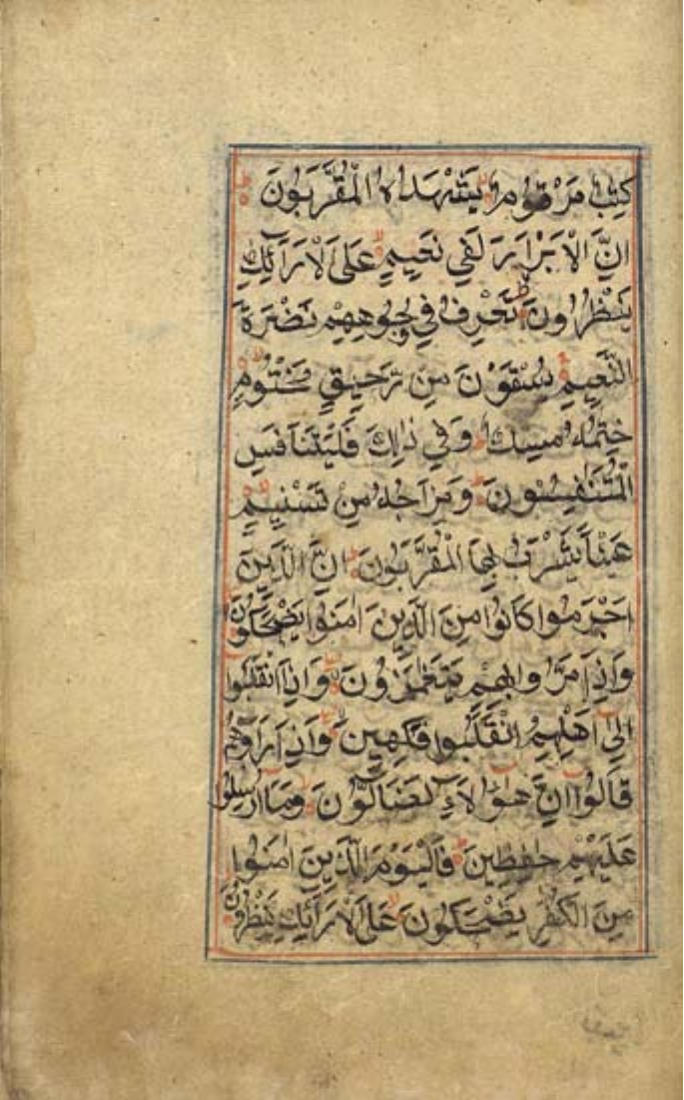 كِتٰبٌ مَرْقُومٌ يَشْهَدُهُ الْمُقَرَّبُونَ
اِنَّ الْاَبْرَارَ لَفِي نَعِيمٍ عَلَى الْاَرَآئِكِ
يَنْظُرُونَ تَعْرِفُ فِي وُجُوهِهِمْ نَضْرَةَ
النَّعِيمِ يُسْقَوْنَ مِنْ رَّحِيقٍ مَّخْتُومٍ
خِتٰمُهُ مِسْكٌ وَفِي ذٰلِكَ فَلْيَتَنَافَسِ
الْمُتَنَافِسُونَ وَمِزَاجُهُ مِنْ تَسْنِيمٍ
عَيْنًا يَشْرَبُ بِهَا الْمُقَرَّبُونَ اِنَّ الَّذِينَ
اَجْرَمُوا كَانُوا مِنَ الَّذِينَ اٰمَنُوا يَضْحَكُونَ
وَاِذَا مَرُّوا بِهِمْ يَتَغَامَزُونَ وَاِذَا انْقَلَبُوا
اِلٰى اَهْلِهِمُ انْقَلَبُوا فَكِهِينَ وَاِذَا رَاَوْهُمْ
قَالُوا اِنَّ هٰؤُلَاءِ لَضَالُّونَ وَمَا اُرْسِلُوا
عَلَيْهِمْ حٰفِظِينَ فَالْيَوْمَ الَّذِينَ اٰمَنُوا
مِنَ الْكُفَّارِ يَضْحَكُونَ عَلَى الْاَرَآئِكِ يَنْظُرُونَ